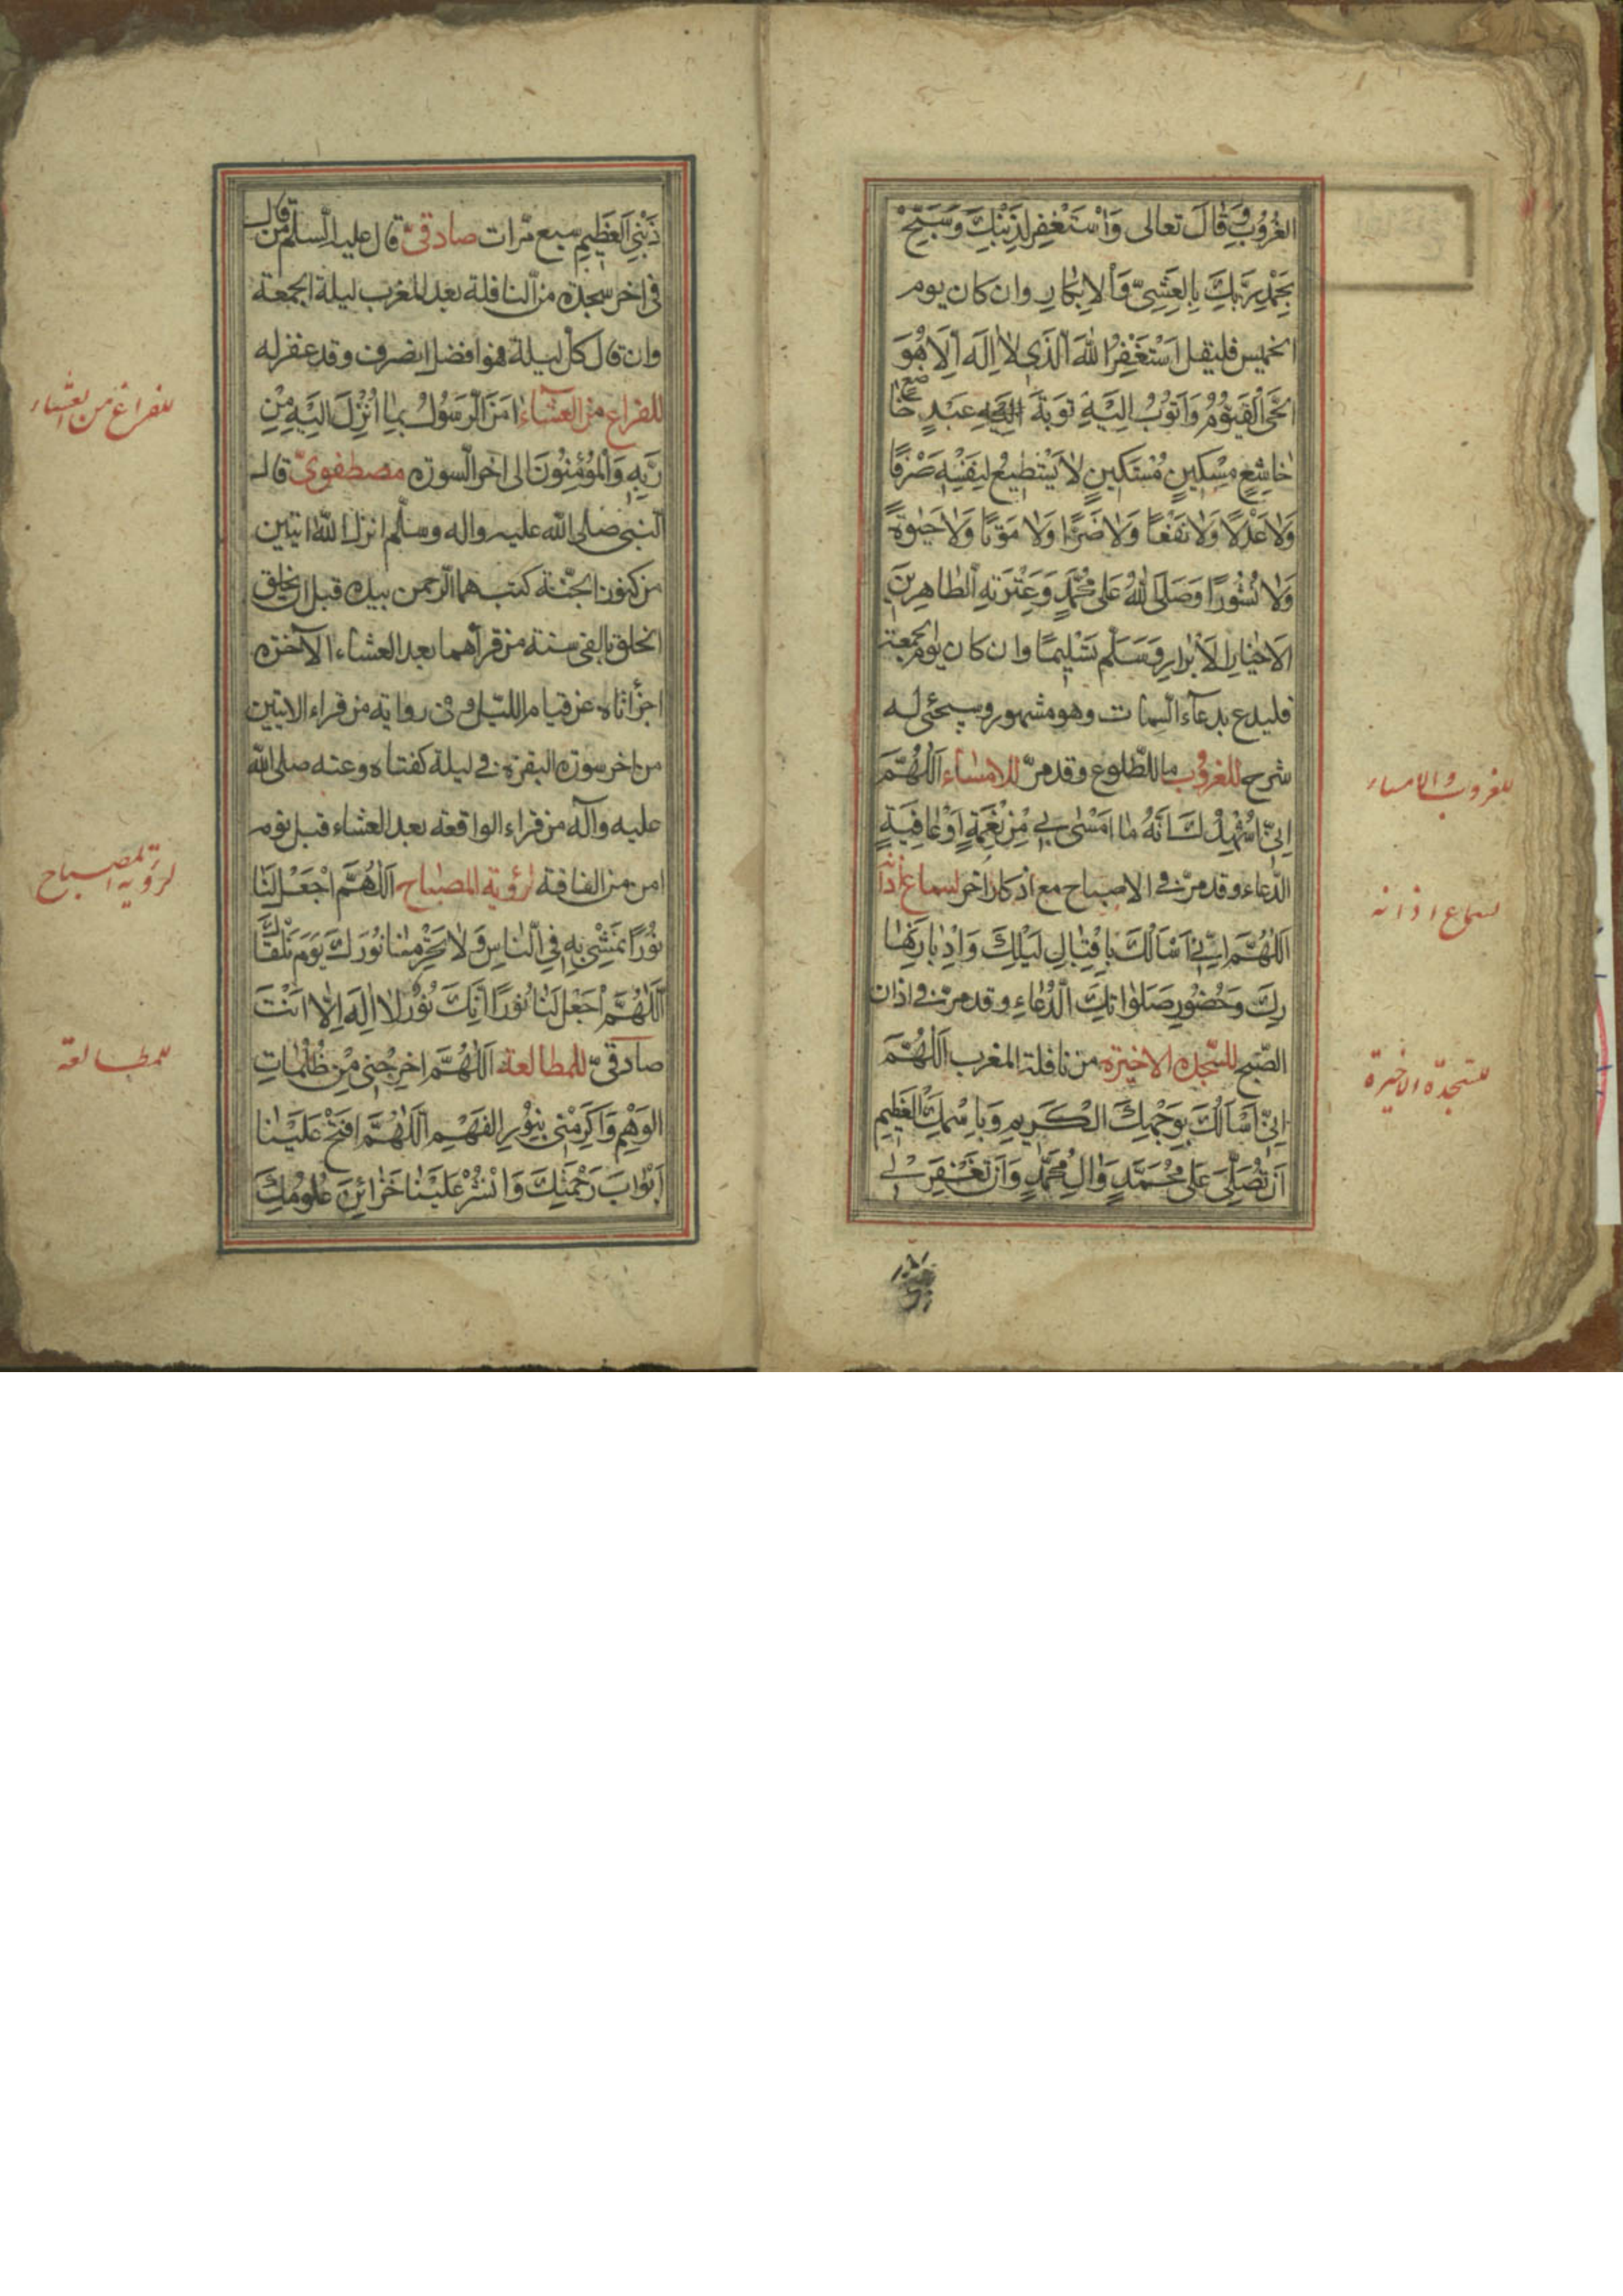 الغُرُوبِ وَقَالَ تعالى وَاسْتَغْفِرْ لِذَنْبِكَ وَسَبِّحْ
بِحَمْدِ رَبِّكَ بِالْعَشِيِّ وَالْاِبْكَارِ وان كان يوم
الخميس فليقل اَسْتَغْفِرُ اللّٰهَ الَّذِي لَا اِلٰهَ اِلَّا هُوَ
الْحَيَّ الْقَيُّومُ وَاَتُوبُ اِلَيْهِ تَوْبَةَ عَبْدٍ خَاضِعٍ
خَاشِعٍ مِسْكِينٍ مُسْتَكِينٍ لَا يَسْتَطِيعُ لِنَفْسِهِ صَرْفًا
وَلَا عَدْلًا وَلَا نَفْعًا وَلَا ضَرًّا وَلَا مَوْتًا وَلَا حَيٰوةً
وَلَا نُشُورًا وَصَلَّى اللّٰهُ عَلٰى مُحَمَّدٍ وَعِتْرَتِهِ الطَّاهِرِينَ
الْاَخْيَارِ الْاَبْرَارِ وَسَلَّمَ تَسْلِيمًا وان كان يوم الجمعة
فليدع بدعاء السِّمات وهو مشهور وسيجئ له
شرح للغروب ما للطّلوع وقد مرّ للامساء اَللّٰهُمَّ
اِنِّي اُشْهِدُ لَكَ اَنَّهُ مَا اَمْسٰى بِي مِنْ نِعْمَةٍ اَوْ عَافِيَةٍ
الدّعاء وقد مرّ في الاصباح مع اذكار اخر لسماع اذانه
اَللّٰهُمَّ اِنِّي اَسْاَلُكَ بِاِقْبَالِ لَيْلِكَ وَاِدْبَارِ نَهَا
رِكَ وَحُضُورِ صَلَوَاتِكَ الدُّعَاءِ وقد مرّ في اذان
الصّبح للسّجدة الاخيرة من نافلة المغرب اَللّٰهُمَّ
اِنِّي اَسْاَلُكَ بِوَجْهِكَ الْكَرِيمِ وَبِاسْمِكَ الْعَظِيمِ
اَنْ تُصَلِّيَ عَلٰى مُحَمَّدٍ وَاٰلِ مُحَمَّدٍ وَاَنْ تَغْفِرَ لِي
للغروب والامساء
لسماع اذانه
للسّجدة الاخيرة
ذَنْبِيَ الْعَظِيمِ سبع مرّات صادقيّ قال عليه السّلم من قال
في اخر سجدة من النّافلة بعد المغرب ليلة الجمعة
وان قال كلّ ليلة فهو افضل انصرف وقد غفر له
للفراغ من العشاء اٰمَنَ الرَّسُولُ بِمَا اُنْزِلَ اِلَيْهِ مِنْ
رَبِّهِ وَالْمُؤْمِنُونَ الى اخر السّورة مصطفويّ قال
النّبي صلى الله عليه واله وسلّم انزل الله ايتين
من كنوز الجنّة كتبهما الرّحمن بيده قبل ان يخلق
الخلق بالفى سنة من قرأهما بعد العشاء الآخرة
اجزأتاه عن قيام اللّيل وفى رواية من قراء الايتين
من اخر سورة البقرة في ليلة كفتاه وعنه صلى الله
عليه وآله من قراء الواقعة بعد العشاء قبل نومه
امن من الفاقة لرؤية المصباح اَللّٰهُمَّ اجْعَلْ لَنَا
نُورًا نَمْشِي بِهِ فِي النَّاسِ وَلَا تَحْرِمْنَا نُورَكَ يَوْمَ نَلْقَاكَ
اَللّٰهُمَّ اجْعَلْ لَنَا نُورًا اِنَّكَ نُورٌ لَا اِلٰهَ اِلَّا اَنْتَ
صادقيّ للمطالعة اَللّٰهُمَّ اَخْرِجْنِي مِنْ ظُلُمَاتِ
الْوَهْمِ وَاَكْرِمْنِي بِنُورِ الْفَهْمِ اَللّٰهُمَّ افْتَحْ عَلَيْنَا
اَبْوَابَ رَحْمَتِكَ وَانْشُرْ عَلَيْنَا خَزَائِنَ عُلُومِكَ
للفراغ من العشاء
لرؤية المصباح
للمطالعة